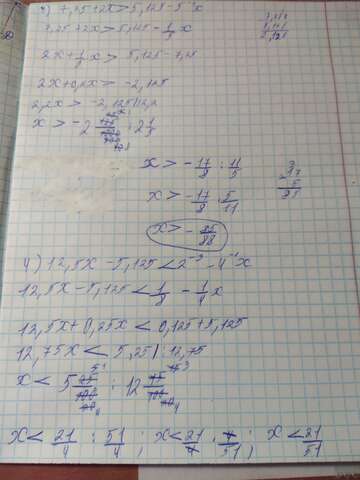 7,25+2x>5,125-5⁻¹x
7,25+2x>5,125-1/5x
2x+1/5x>5,125-7,25
2x+0,2x>-2,125
2,2x>-2,125/:2,2
x>-2 : 2 1/5
x>-17/8 : 11/5
x>-17/8 · 5/11
x>-85/88
4) 12,5x-5,125<2⁻³-4⁻¹x
12,5x-5,125<1/8-1/4x
12,5x+0,25x<0,125+5,125
12,75x<5,25/:12,75
x<5 25/100 : 12 75/100
x<21/4 : 51/4 ; x<21/4 · 4/51 ; x<21/51